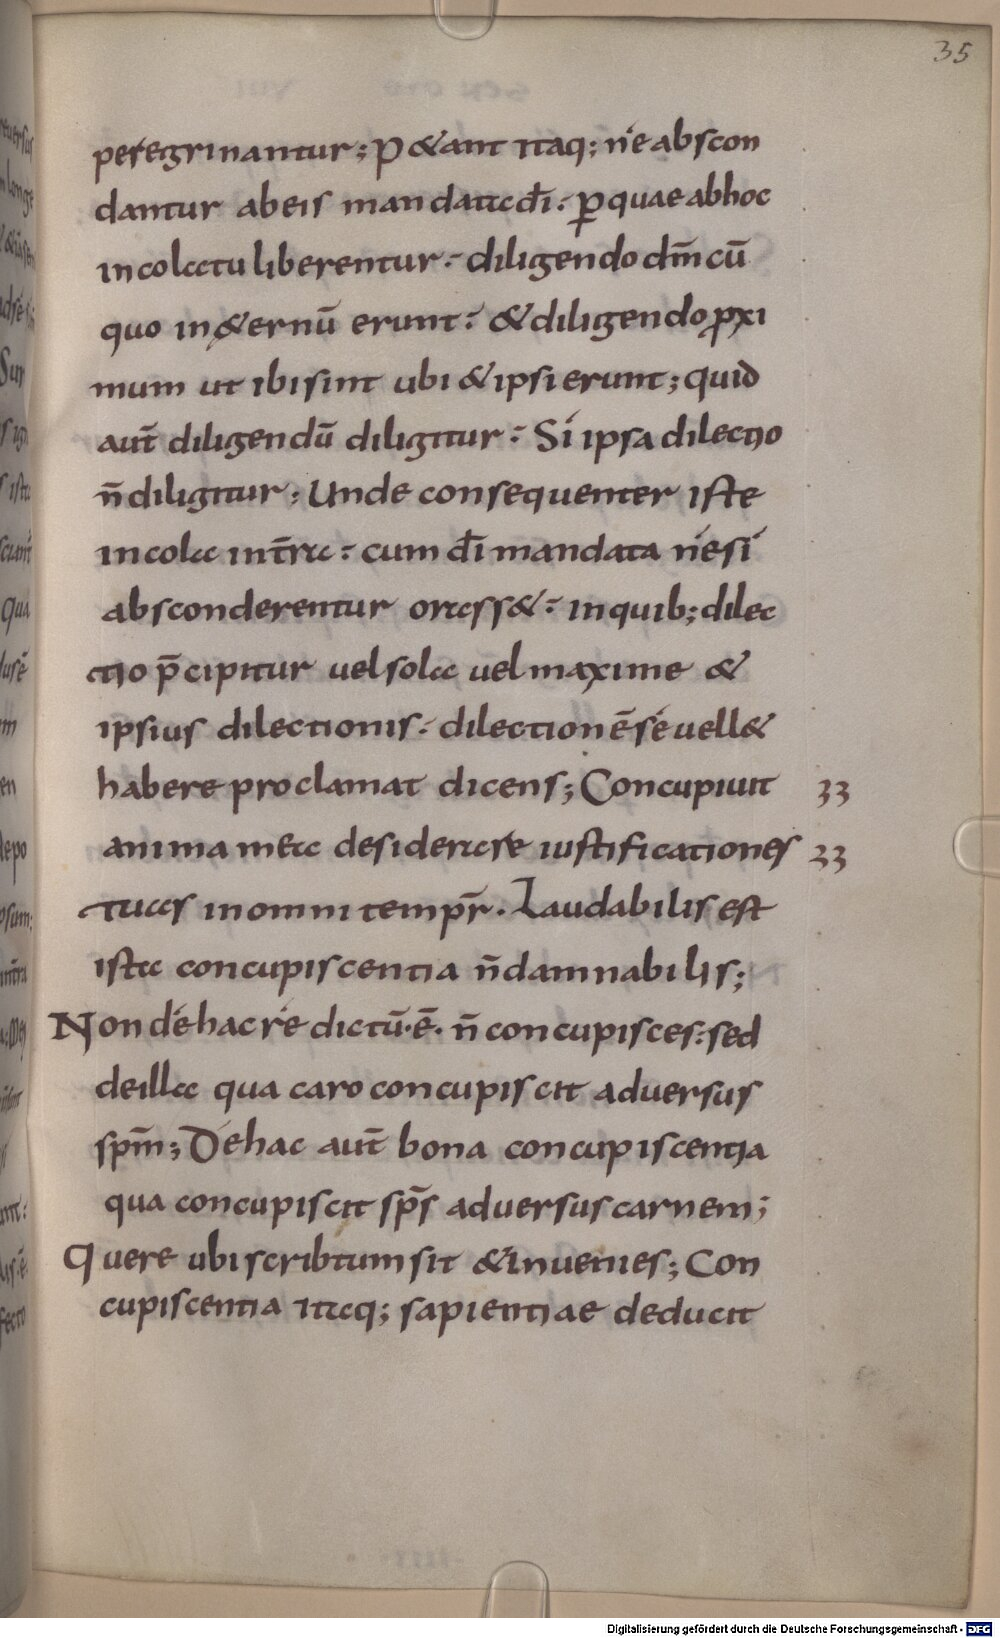 35
peregrinantur; P&ant itaq; ne abscon
dantur ab eis mandata dī. p quae ab hoc
incolatu liberentur. diligendo dm̄ cū
quo in &ernū erunt. & diligendo proxi
mum ut ibi sint ubi & ipsi erunt; quid
aut̄ diligendū diligitur. Si ipsa dilectio
n̄ diligitur. Unde consequenter iste
incola in t̄ra. cum dī mandata ne si
absconderentur orass&. in quib; dilec
tio p̄cipitur vel sola vel maxime &
ipsius dilectionis. dilectionē se vell&
habere proclamat dicens; Concupivit 33
anima mea desiderare iustificationes 33
tuas in omni tempr̄. Laudabilis est
ista concupiscentia n̄ damnabilis;
Non de hac re dictū.ē. n̄ concupisces. sed
de illa qua caro concupiscit adversus
spm̄; De hac aut̄ bona concupiscentia
qua concupiscit sps̄ adversus carnem;
Quere ubi scribtum sit & invenies; Con
cupiscentia itaq; sapientiae deducit
Digitalisierung gefördert durch die Deutsche Forschungsgemeinschaft - DFG